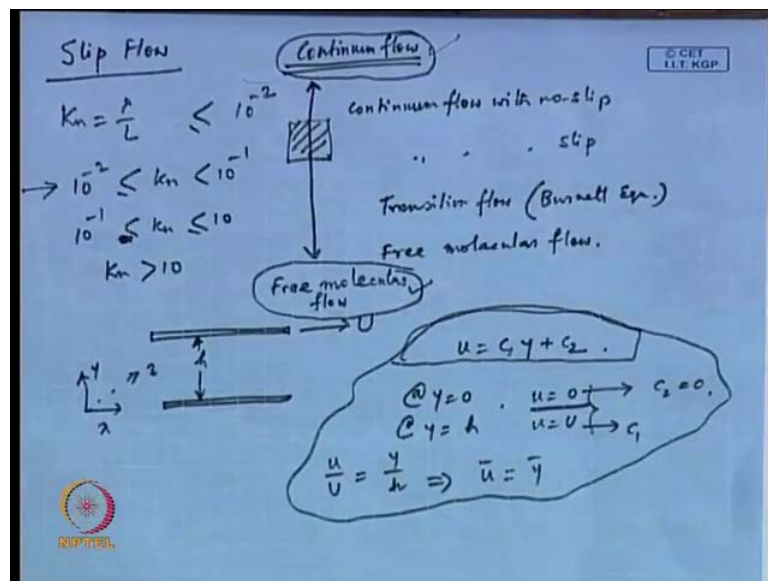 Slip Flow
Continuum flow.
© CET
I.I.T. KGP
Kn = λ/L ≤ 10⁻²
continuum flow with no-slip
→ 10⁻² ≤ Kn < 10⁻¹
" " " slip
10⁻¹ ≤ Kn ≤ 10
Transition flow (Burnett Eqn.)
Kn > 10
Free molecular flow.
Free molecular flow
U
h
y
x
z
u = C₁ y + C₂ .
@ y=0 . u=0 → C₂ = 0.
@ y=h u=U → C₁
u/U = y/h ⇒ ū = ȳ
NPTEL